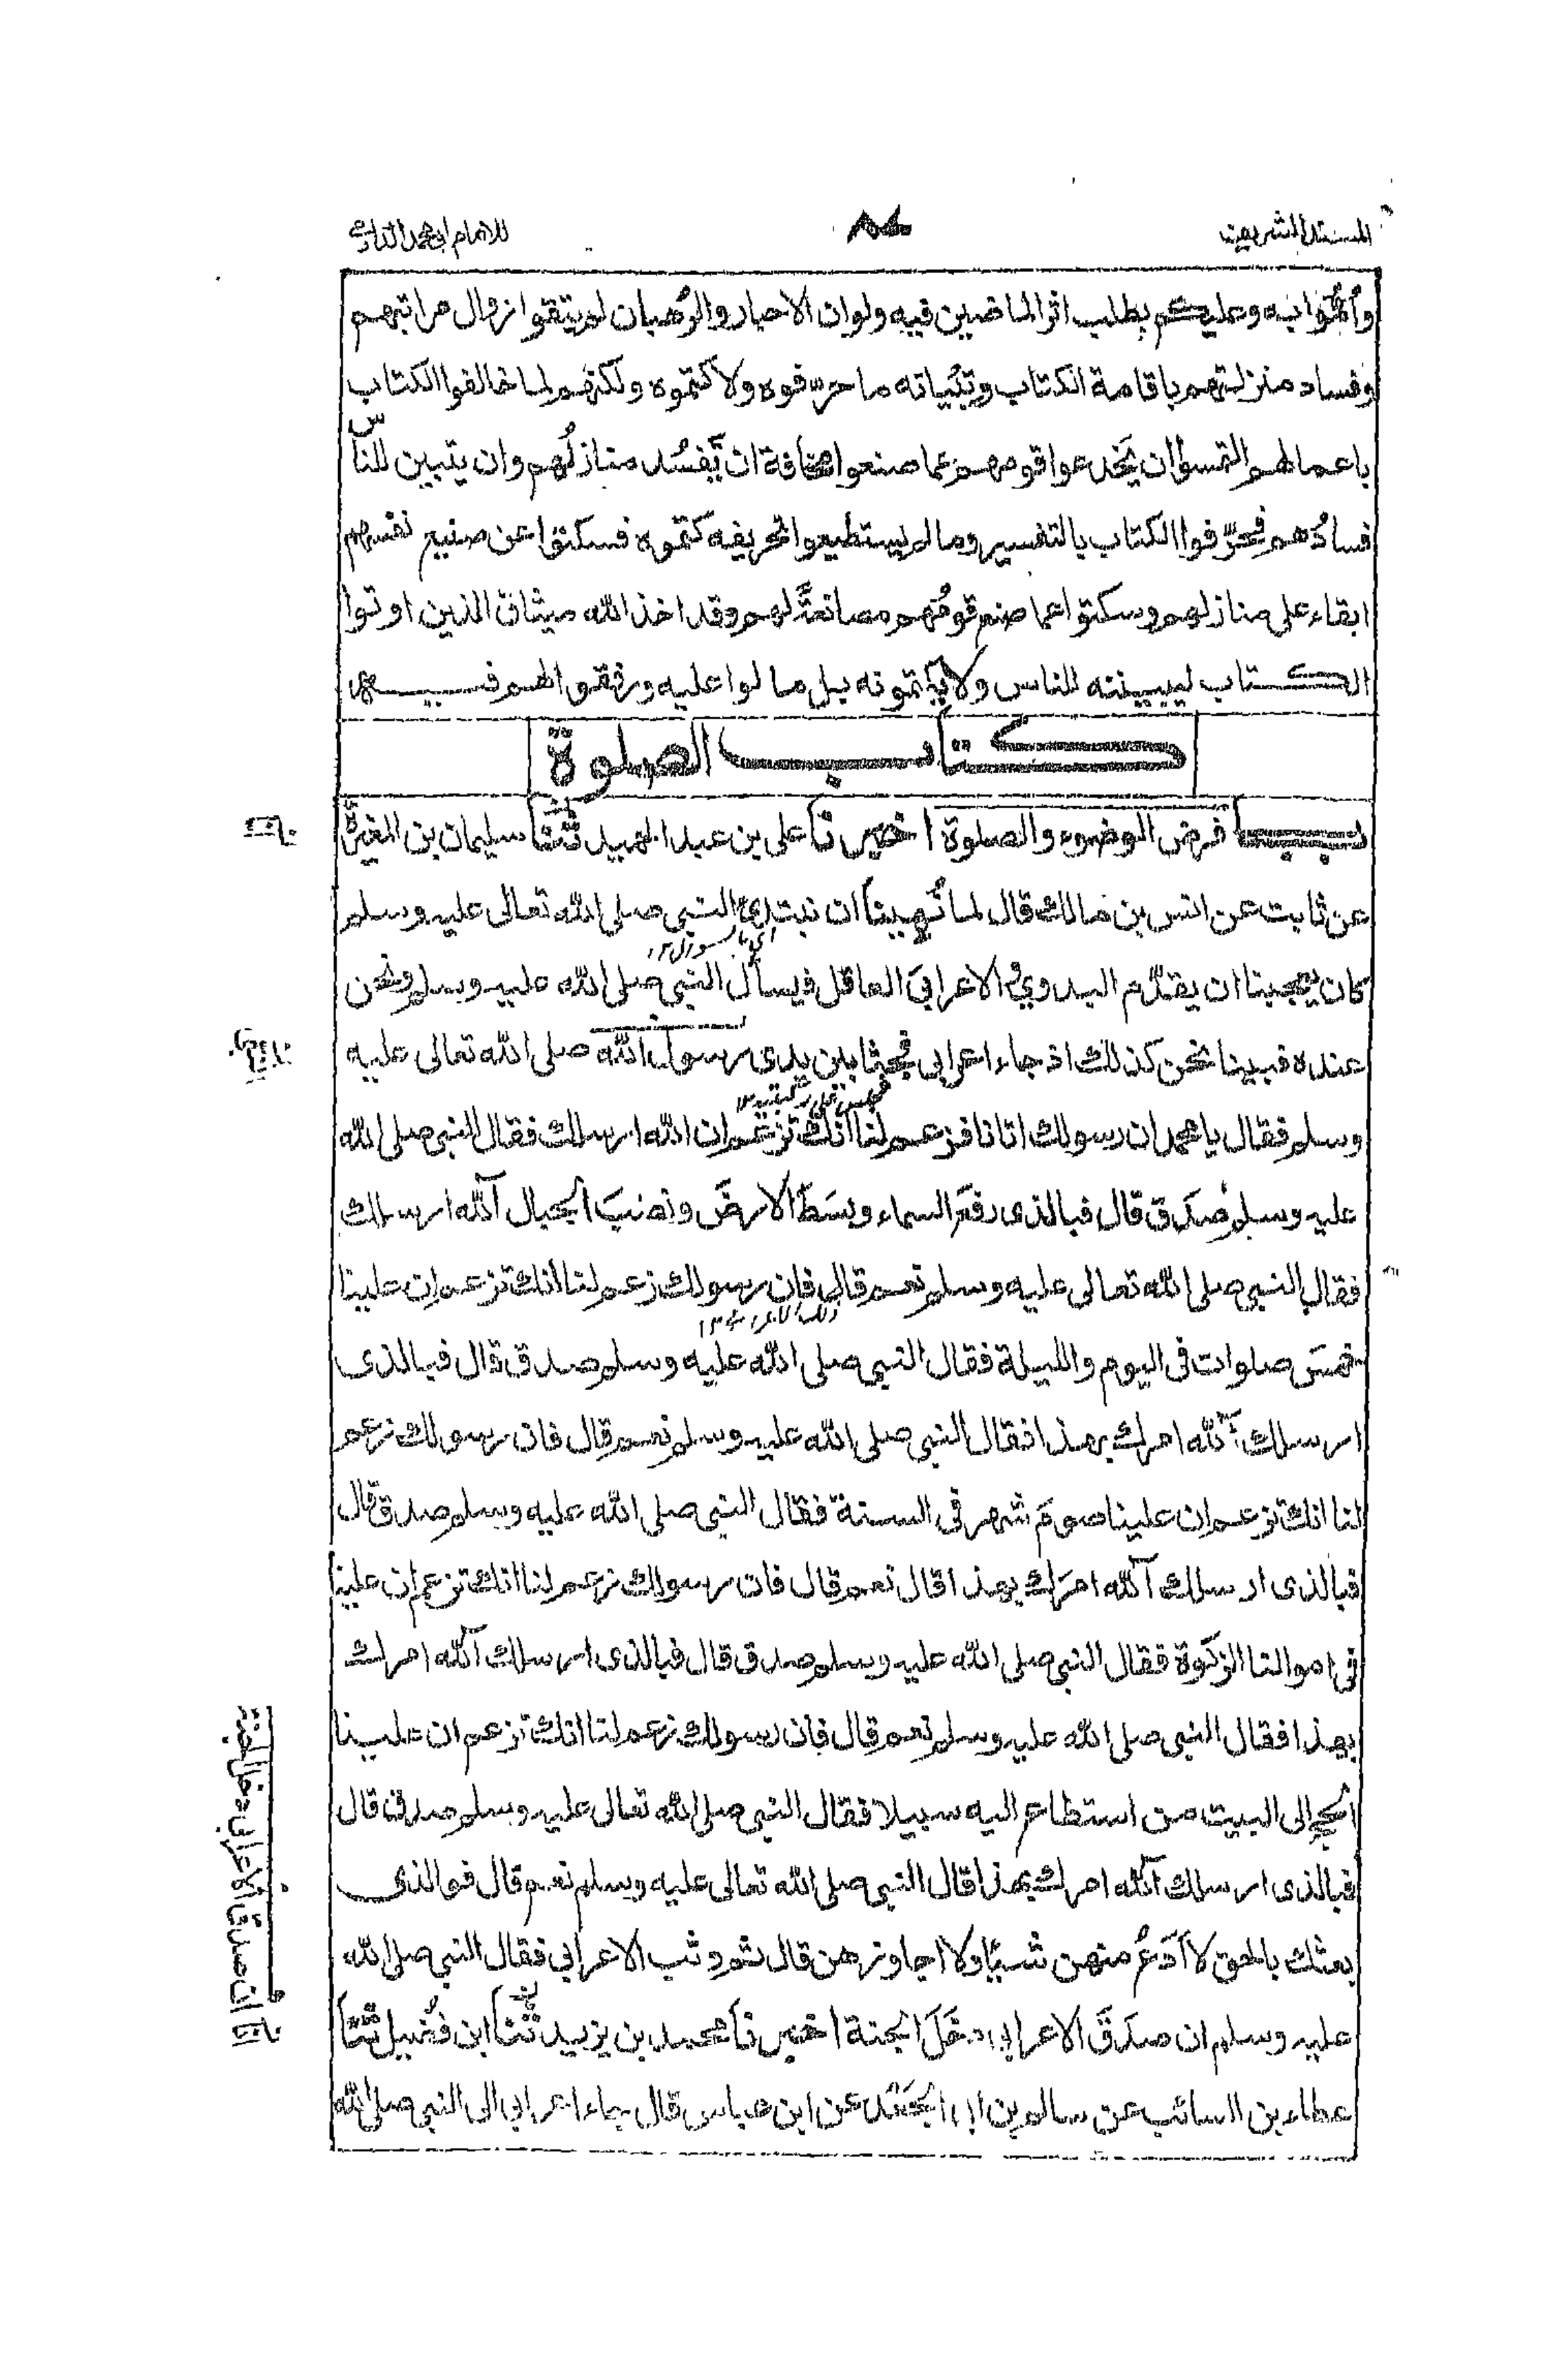 المسند الشريف
للامام ابي محمد الدارمي
وأمّوا به وعليكم بطلب اثر الماضين فيه ولو ان الاحبار والرُهبان لم يتقوا زوال مراتبهم
وفساد منزلتهم باقامة الكتاب وتِبْيانه ما حرّفوه ولا كتموه ولكنهم لما خالفوا الكتاب
باعمالهم التمسوا ان يَخدعوا قومهم عما صنعوا مخافة ان تَفسُد منازلُهم وان يتبين للنّاس
فسادُهم فحرّفوا الكتاب بالتفسير وما لم يستطيعوا تحريفه كتموه فسكتوا عن صنيع نفسهم
ابقاء على منازلهم وسكتوا عما صنع قومُهم مصانعةً لهم وقد اخذ الله ميثاق الذين اوتوا
الكتاب ليبيننه للناس ولا يكتمونه بل مالوا عليه ورققوا لهم فيه
كتاب الصلوة
باب فرض الوضوء والصلوة اخبرنا على بن عبد الحميد ثنا سليمان بن المغيرة
عن ثابت عن انس بن مالك قال لما نُهينا ان نبتدئ النبي صلى الله تعالى عليه وسلم
كان يعجبنا ان يقدُم البدويُّ والاعرابيّ العاقل فيسأل النبي صلى الله عليه وسلم ونحن
عنده فبينا نحن كذلك اذ جاء اعرابى فجثا بين يدى رسول الله صلى الله تعالى عليه
وسلم فقال يا محمد ان رسولك اتانا فزعم لنا انّك تزعم ان الله ارسلك فقال النبى صلى الله
عليه وسلم صَدَق قال فبالذى رفع السماء وبسَطَ الارضَ ونصَبَ الجبال آلله ارسلك
فقال النبى صلى الله تعالى عليه وسلم نعم قال فان رسولك زعم لنا انك تزعم ان علينا
خمسَ صلوات فى اليوم والليلة فقال النبى صلى الله عليه وسلم صدق قال فبالذى
ارسلك آلله امرك بهذا فقال النبى صلى الله عليه وسلم نعم قال فان رسولك زعم
لنا انك تزعم ان علينا صومَ شهر فى السنة فقال النبى صلى الله عليه وسلم صدق قال
فبالذى ارسلك آلله امرَك بهذا قال نعم قال فان رسولك زعم لنا انك تزعم ان علينا
فى اموالنا الزكوة فقال النبى صلى الله عليه وسلم صدق قال فبالذى ارسلك آلله امرك
بهذا فقال النبى صلى الله عليه وسلم نعم قال فان رسولك زعم لنا انك تزعم ان علينا
الحج الى البيت من استطاع اليه سبيلا فقال النبى صلى الله تعالى عليه وسلم صدق قال
فبالذى ارسلك آلله امرك بهذا قال النبى صلى الله تعالى عليه وسلم نعم قال فوالذى
بعثك بالحق لا اَدَعُ منهن شيئًا ولا اجاوزهن قال ثم وثب الاعرابى فقال النبى صلى الله
عليه وسلم ان صدَقَ الاعرابى دخَلَ الجنة اخبرنا محمد بن يزيد ثنا ابن فُضيل ثنا
عطاء بن السائب عن سالم بن ابى الجَعْد عن ابن عباس قال جاء اعرابى الى النبى صلى الله
ان صدق الاعرابى دخل الجنة